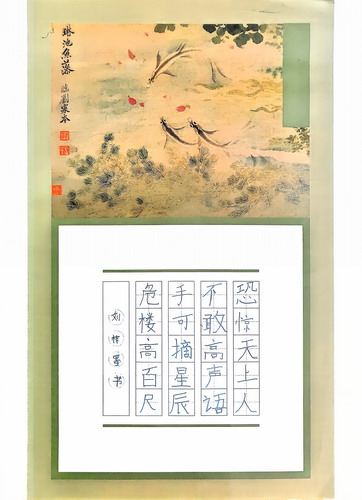 池魚
臨劉寀本
危楼高百尺
手可摘星辰
不敢高声语
恐惊天上人
刘墨书